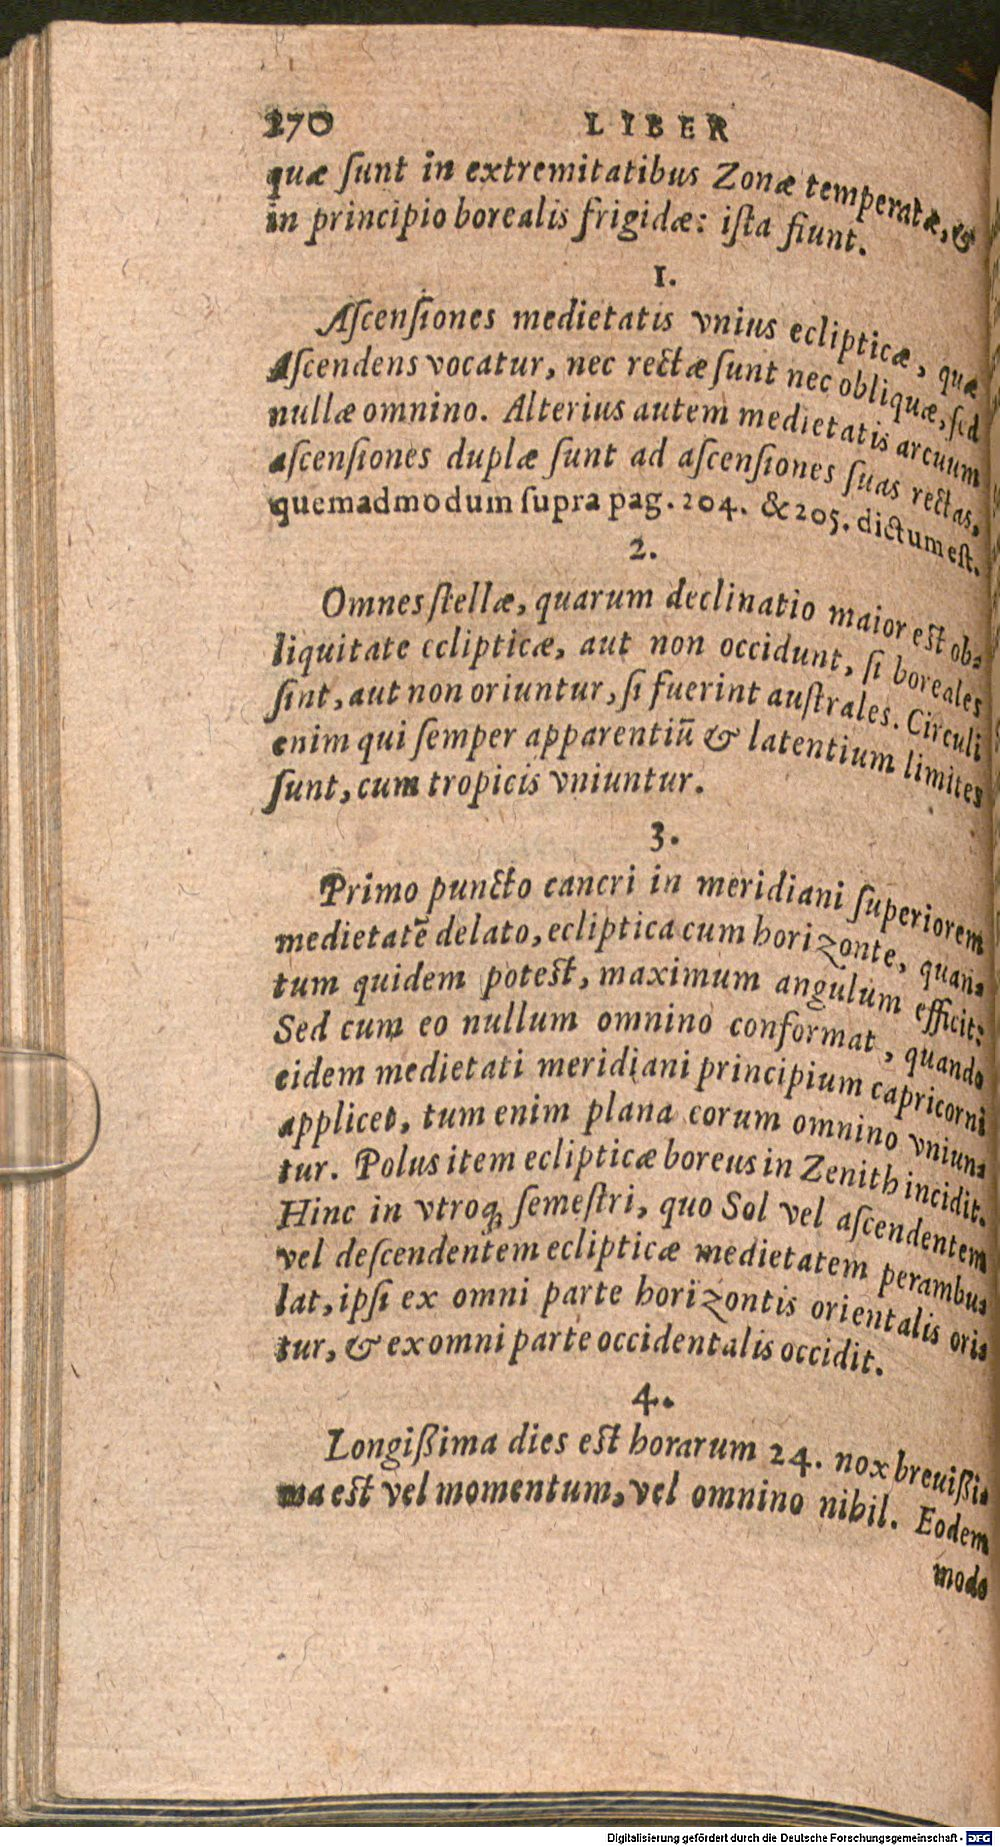 270 LIBER
quæ ſunt in extremitatibus Zonæ temperatæ, &
in principio borealis frigidæ: iſta fiunt.
1.
Aſcenſiones medietatis vnius eclipticæ, quæ
Aſcendens vocatur, nec rectæ ſunt nec obliquæ, ſed
nullæ omnino. Alterius autem medietatis arcuum
aſcenſiones duplæ ſunt ad aſcenſiones ſuas rectas,
quemadmodum ſupra pag. 204. & 205. dictum eſt.
2.
Omnes ſtellæ, quarum declinatio maior eſt ob-
liquitate eclipticæ, aut non occidunt, ſi boreales
ſint, aut non oriuntur, ſi fuerint auſtrales. Circuli
enim qui ſemper apparentiū & latentium limites
ſunt, cum tropicis vniuntur.
3.
Primo puncto cancri in meridiani ſuperiorem
medietatē delato, ecliptica cum horizonte, quan-
tum quidem poteſt, maximum angulum efficit:
Sed cum eo nullum omnino conformat, quando
eidem medietati meridiani principium capricorni
applicet, tum enim plana eorum omnino vniun-
tur. Polus item eclipticæ boreus in Zenith incidit.
Hinc in vtroq; ſemeſtri, quo Sol vel aſcendentem
vel deſcendentem eclipticæ medietatem perambu-
lat, ipſi ex omni parte horizontis orientalis ori-
tur, & ex omni parte occidentalis occidit.
4.
Longißima dies eſt horarum 24. nox breuißi-
ma eſt vel momentum, vel omnino nihil. Eodem
modo
Digitalisierung gefördert durch die Deutsche Forschungsgemeinschaft - DFG